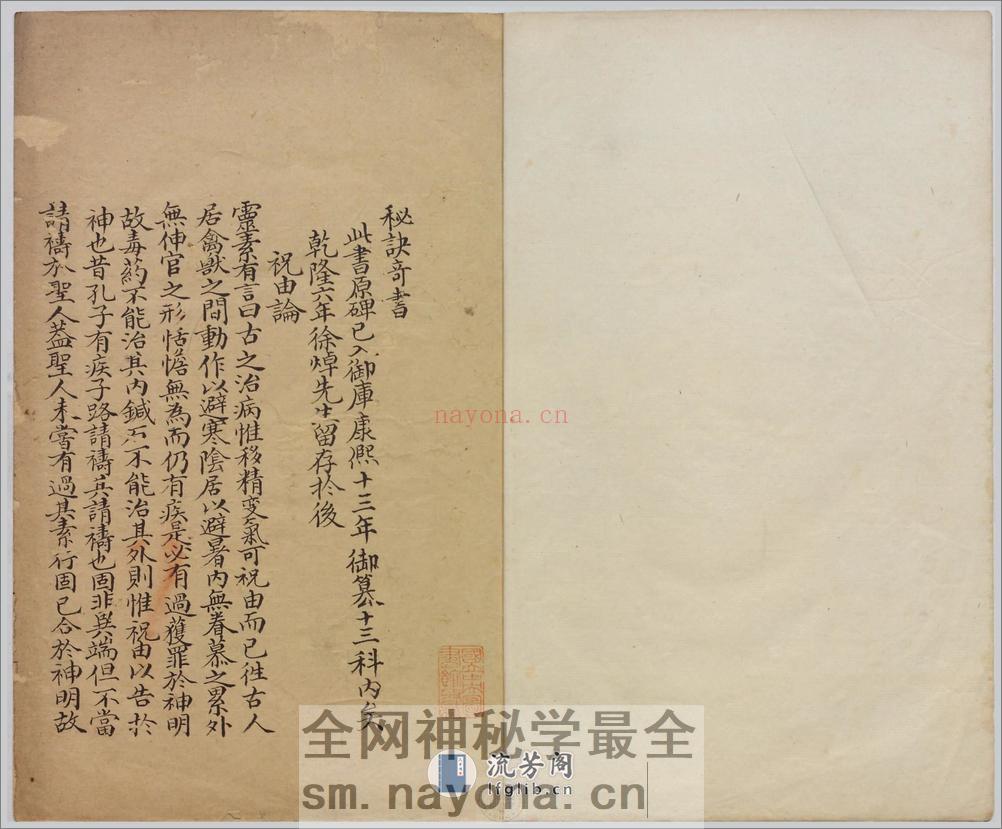 秘訣奇書
此書原碑已入御庫康熈十三年御纂十三科內矣
乾隆六年徐焯先生留存於後
祝由論
靈素有言曰古之治病惟移精变氣可祝由而已徃古人
居禽獸之間動作以避寒陰居以避暑內無眷慕之累外
無伸官之形恬憺無為而仍有疾是必有過獲罪於神明
故毒药不能治其內鍼石不能治其外則惟祝由以告於
神也昔孔子有疾子路請禱其請禱也固非異端但不當
請禱於聖人葢聖人未嘗有過其素行固已合於神明故
nayona.cn
全网神秘学最全
流芳阁
lfglib.cn
sm.nayona.cn